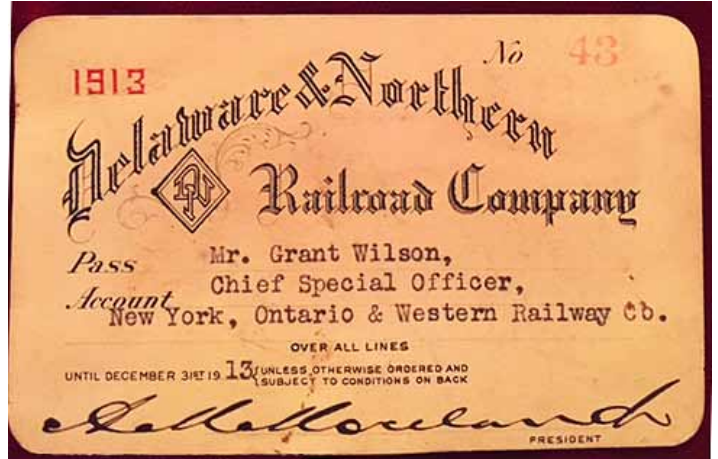 1913
No 43
Delaware & Northern
DN
Railroad Company
Pass Mr. Grant Wilson,
Account Chief Special Officer,
New York, Ontario & Western Railway Co.
OVER ALL LINES
UNTIL DECEMBER 31ST 19 13 {UNLESS OTHERWISE ORDERED AND
SUBJECT TO CONDITIONS ON BACK
PRESIDENT